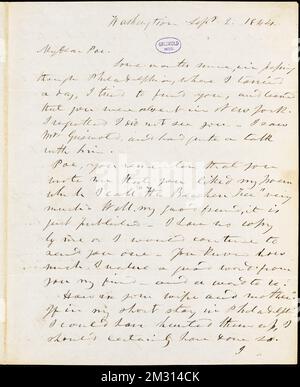 Washington Sept 2. 1844.
GRISWOLD
MSS.
My dear Poe.
Some months since, in passing
through Philadelphia, where I tarried
a day, I tried to find you, and learnt
that you were absent in New York.
I regretted I did not see you — I saw
Mr Griswold, and had quite a talk
with him.
Poe, you remember that you
wrote me that you liked my Poem
which I call "The Broken Tie" very
much. Well, my good friend, it is
just published — I have no copy
by me or I would certainly
send you one — You know how
much I value a good word from
you my friend — and
Have you your wife and mother
in my short stay in Philadelphia
I would have hunted them up, I
should certainly have done so.
I
alamy
Image ID: 3M314CK
www.alamy.com